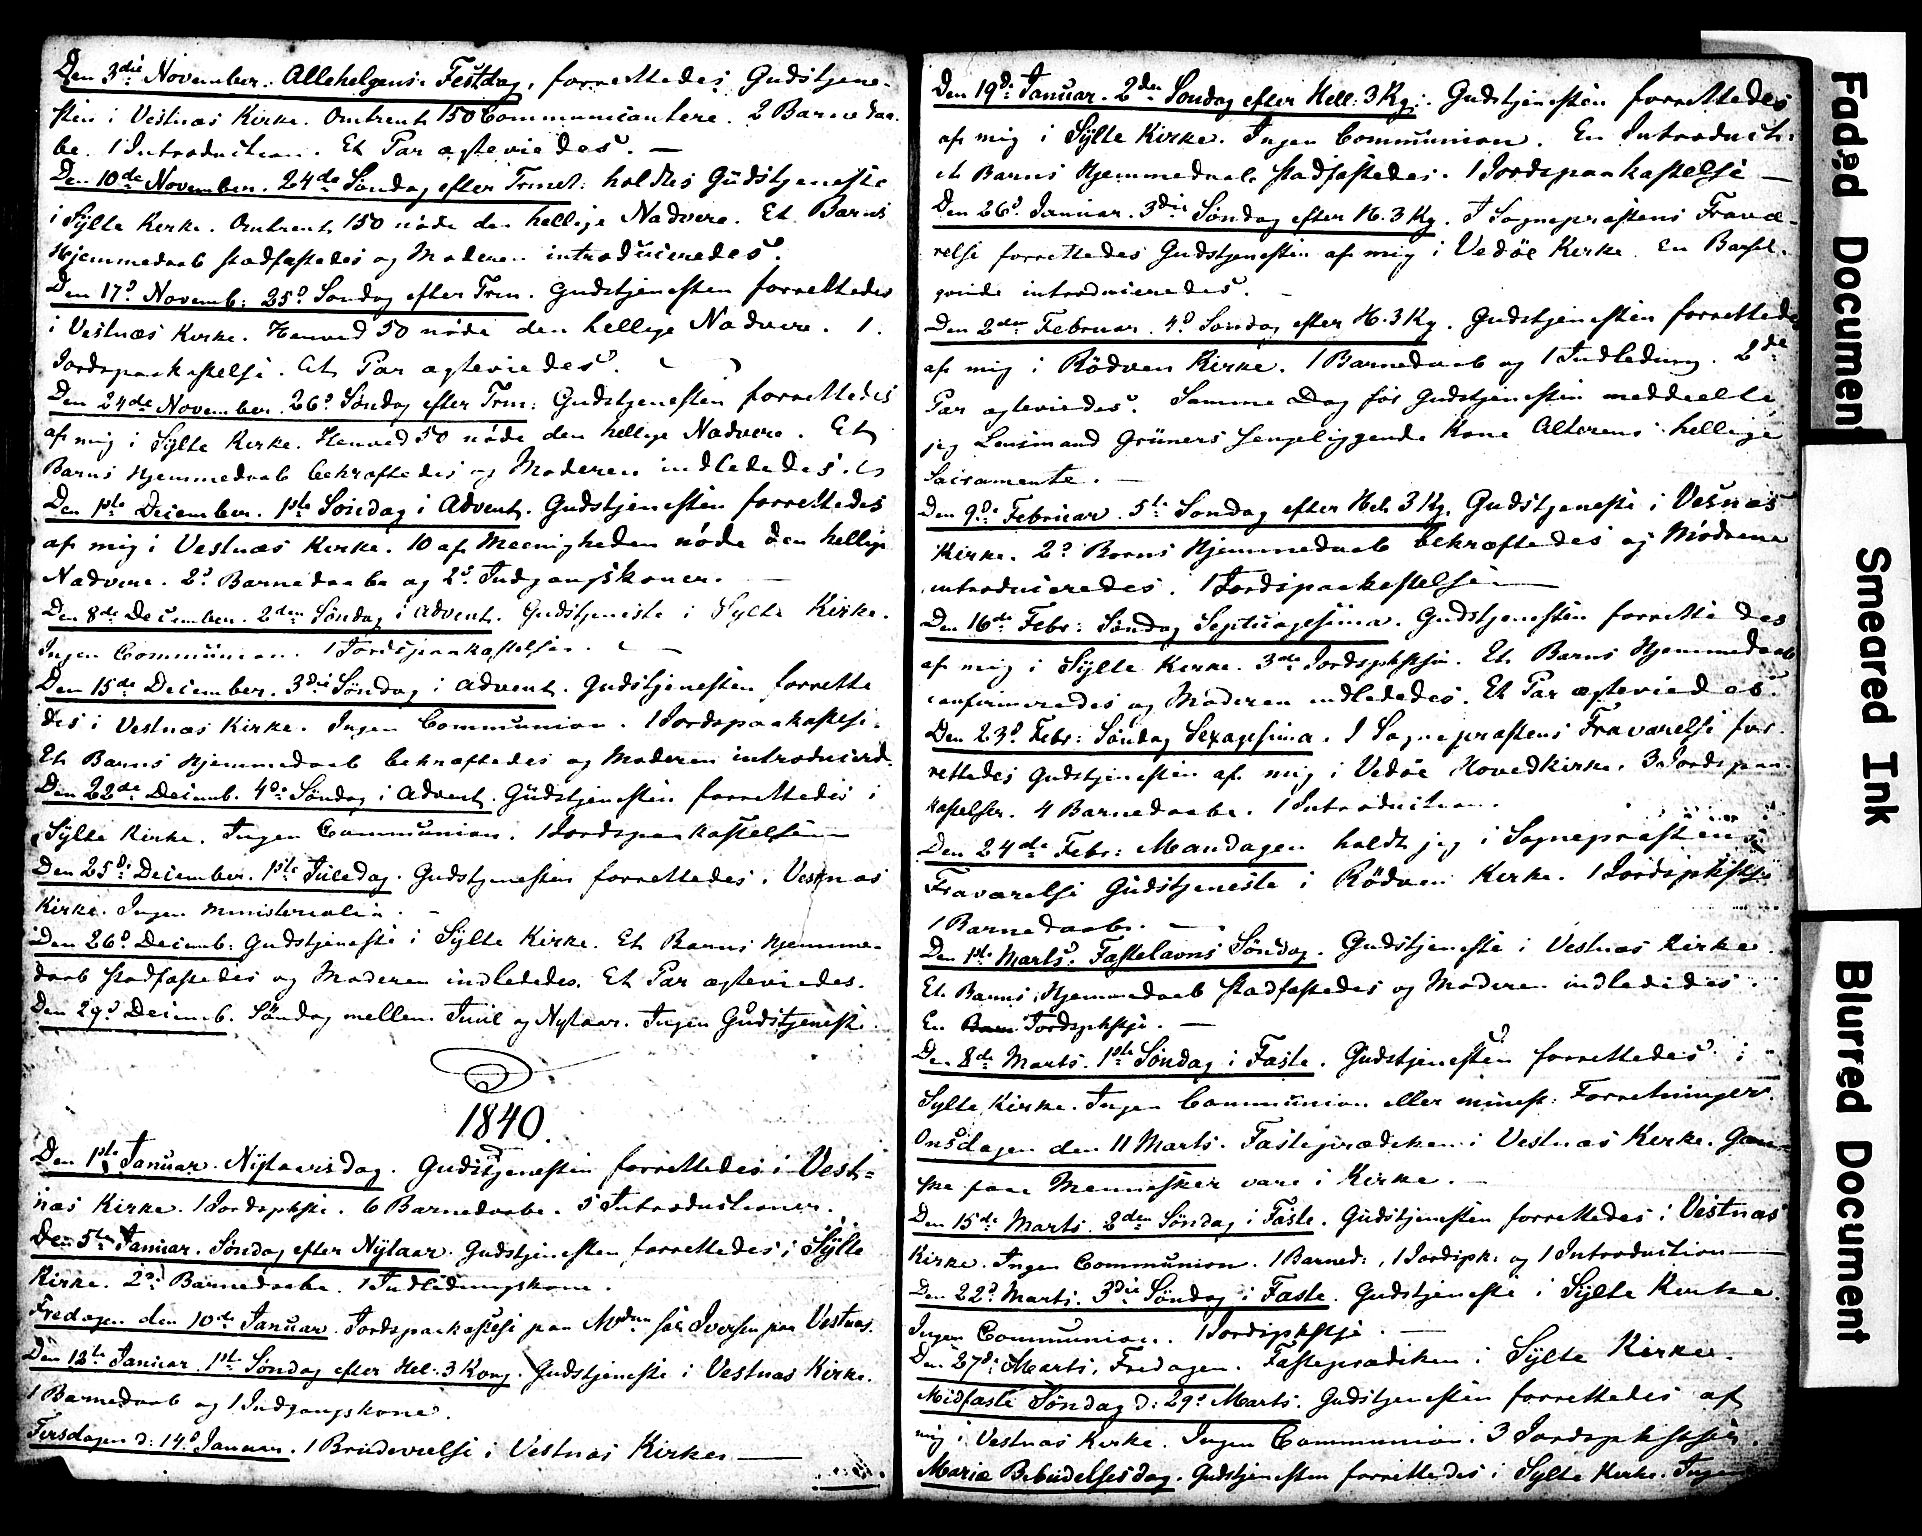 Den 3die November. Allehelgens. Festdag, forrettedes Gudstjene-
sten i Vestnæs Kirke. Omtrent 150 Communicantere. 2 Barnedaa-
be. 1 Introduction. Et Par ægteviedes. —
Den 10de November. 24de Søndag efter Trinit: holdtes Gudstjeneste
i Sylte Kirke. Omtrent 150 nøde den hellige Nadvere. Et Barns
Hjemmedaab stadfæstedes og Moderen introduceredes.
Den 17d Novemb: 25d Søndag efter Trin. Gudstjenesten forrettedes
i Vestnæs Kirke. Henved 50 nøde den hellige Nadvere. 1.
Jordspaakastelse. Et Par ægteviedes.
Den 24de November. 26d Søndag efter Trin: Gudstjenesten forrettedes
af mig i Sylte Kirke. Henved 50 nøde den hellige Nadvere. Et
Barns Hjemmedaab bekræftedes og Moderen indlededes.
Den 1ste December. 1ste Søndag i Advent. Gudstjenesten forrettedes
af mig i Vestnæs Kirke. 10 af Meenigheden nøde den hellige
Nadvere. 2d Barnedaabe og 2d Indgangskoner. —
Den 8de December. 2den Søndag i Advent. Gudstjeneste i Sylte Kirke.
Ingen Communion. 1 Jordspaakastelse. —
Den 15de December. 3die Søndag i Advent. Gudstjenesten forrette
des i Vestnæs Kirke. Ingen Communion. 1 Jordspaakastelse.
Et Barns Hjemmedaab bekræftedes og Moderen introducered.
Den 22de Decemb. 4de Søndag i Advent. Gudstjenesten forrettedes i
Sylte Kirke. Ingen Communion. 1 Jordspaakastelse —
Den 25d December. 1ste Juledag. Gudstjenesten forrettedes i Vestnæs
Kirke. Ingen Ministerialia. —
Den 26d Decemb: Gudstjeneste i Sylte Kirke. Et Barns Hjemme-
daab stadfæstedes og Moderen indlededes. Et Par ægteviedes.
Den 29d Decemb. Søndag mellem Juul og Nytaar. Ingen Gudstjenest.
1840.
Den 1ste Januar. Nytaarsdag. Gudstjenesten forrettedes i Vest=
næs Kirke. 1 Jordspkste. 6 Barnedaabe. 5 Introductioner.
Den 5te Januar. Søndag efter Nytaar. Gudstjenesten forrettedes i Sylte
Kirke. 2d Barnedaabe. 1 Indledningskone.
Fredagen den 10de Januar. Jordspaakastelse paa Iversen paa Vestnæs.
Den 12te Januar. 1ste Søndag efter Hel: 3 Kong. Gudstjeneste i Vestnæs Kirke.
1 Barnedaab og 1 Indgangskone.
Tirsdagen d: 14d Januar. 1 Brudevielse i Vestnæs Kirke. —
Den 19de Januar. 2den Søndag efter Hell: 3 Kg: Gudstjenesten forrettedes
af mig i Sylte Kirke. Ingen Communion. En Introduct:
et Barns Hjemmedaab stadfæstedes. 1 Jordspaakastelse —
Den 26d Januar. 3die Søndag efter H. 3 Kg. I Sognepræstens Fravæ-
relse forrettedes Gudstjenesten af mig i Vedøe Kirke. En Barsel-
qvinde introduceredes. —
Den 2den Februar. 4d Søndag efter H. 3 Kg. Gudstjenesten forrettedes
af mig i Rödven Kirke. 1 Barnedaab og 1 Indledning. 2de
Par ægteviedes. Samme Dag før Gudstjenesten meddeelte
jeg Lensmand Grüners sengeliggende Kone Alterens hellige
Sacramente. —
Den 9de Februar. 5te Søndag efter Hel. 3 Kg. Gudstjeneste i Vesnæs
Kirke. 2d Børns Hjemmedaab bekræftedes og Mødrene
introduceredes. 1 Jordspaakastelse —
Den 16de Febr: Søndag Septuagesima. Gudstjenesten forrettedes
af mig i Sylte Kirke. 3de Jordspkstse. Et Barns Hjemmedaab
confirmeredes og Moderen indlededes. Et Par ægteviedes.
Den 23d Febr: Søndag Sexagesima. I Sognepræstens Fraværelse for-
rettedes Gudstjenesten af mig i Vedøe Hovedkirke. 3 Jordspaa-
kastelser. 4 Barnedaabe. 1 Introduction.
Den 24de Febr: Mandagen holdt jeg i Sognepræstens
Fraværelse Gudstjeneste i Rödven Kirke. 1 Jordspkstse
1 Barnedaab. —
Den 1ste Marts. Fastelavns Søndag. Gudstjeneste i Vestnæs Kirke.
Et Barns Hjemmedaab stadfæstedes og Moderen indlededes.
En Jordspkstse. —
Den 8de Marts. 1ste Søndag i Faste. Gudstjenesten forrettedes i
Sylte Kirke. Ingen Communion eller minist: Forretninger.
Onsdagen den 11 Marts. Fasteprædiken i Vestnæs Kirke. Gan-
ske faae Mennesker vare i Kirke. —
Den 15de Marts. 2den Søndag i Faste. Gudstjenesten forrettedes i Vestnæs
Kirke. Ingen Communion. 1 Barned:, 1 Jordspk: og 1 Introduction —
Den 22d Marts. 3die Søndag i Faste. Gudstjeneste i Sylte Kirke.
Ingen Communion. 1 Jordspkstse. —
Den 27d: Marts, Fredagen. Fasteprædiken i Sylte Kirke.
Midfaste Søndag d: 29d Marts. Gudstjenesten forrettedes af
mig i Vestnæs Kirke. Ingen Communion. 3 Jordspkstser.
Mariæ Bebudelsesdag. Gudstjenesten forrettedes i Sylte Kirke. Ingen
Faded Document
Smeared Ink
Blurred Document